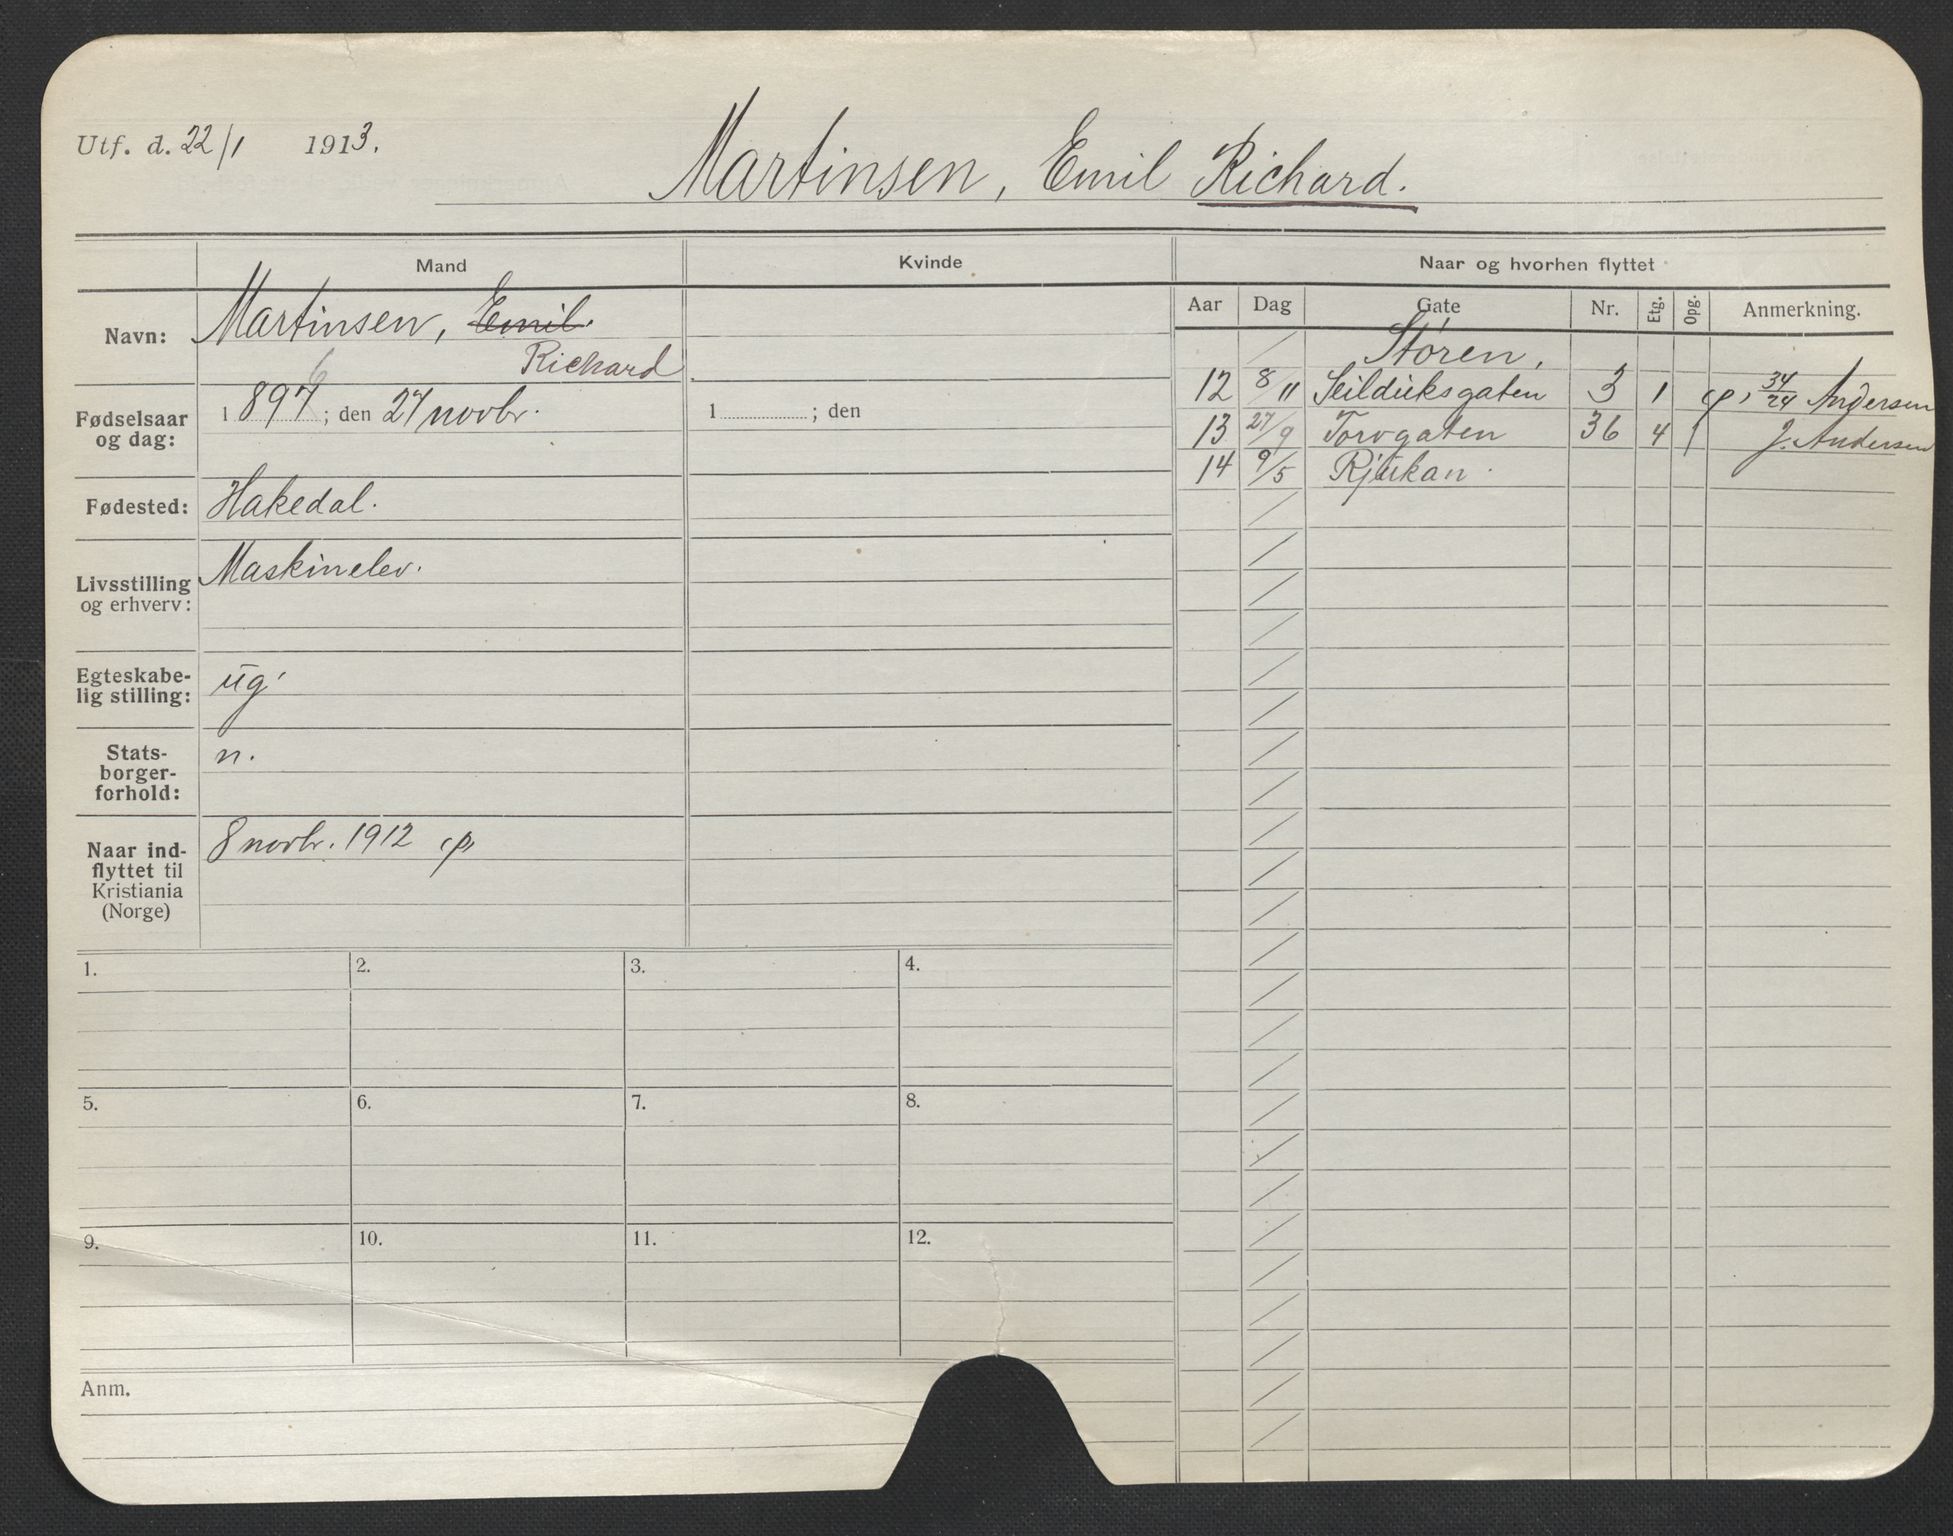 Utf. d. 22/1 1913.
Martinsen, Emil Richard.
Mand
Kvinde
Naar og hvorhen flyttet
Navn:
Martinsen, Emil.
Richard
Aar Dag Gate Nr. Etg. Opg. Anmerkning.
Støren,
12 8/11 Seilduksgaten 3 1 34/24 Andersen
13 27/9 Torvgaten 36 4 1 J. Andersen
14 9/5 Rjukan.
Fødselsaar
og dag:
6
1897; den 27 novbr.
1 ; den
Fødested:
Hakedal.
Livsstilling
og erhverv:
Maskinelev.
Egteskabe-
lig stilling:
ug.
Stats-
borger-
forhold:
n.
Naar ind-
flyttet til
Kristiania
(Norge)
8 novbr. 1912
1. 2. 3. 4.
5. 6. 7. 8.
9. 10. 11. 12.
Anm.